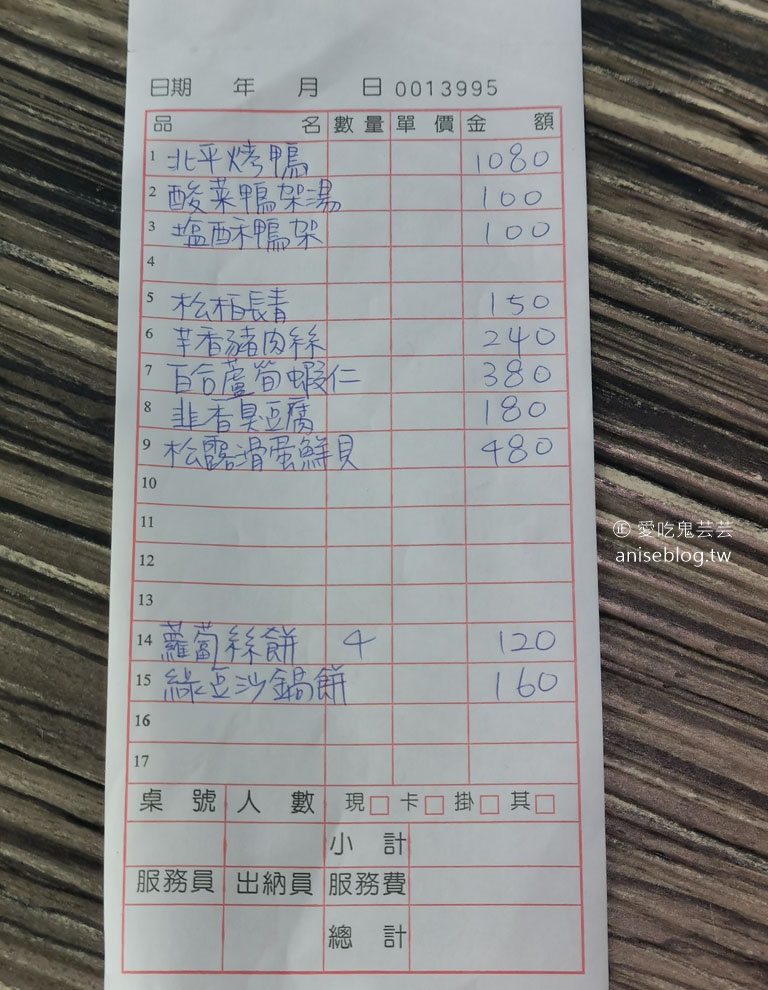 日期 年 月 日 0013995
品名 數量 單價 金額
1 北平烤鴨 1080
2 酸菜鴨架湯 100
3 塩酥鴨架 100
4
5 松柏長青 150
6 芋香豬肉絲 240
7 百合蘆筍蝦仁 380
8 韭香臭豆腐 180
9 松露滑蛋鮮貝 480
10
11
12
13
14 蘿蔔絲餅 4 120
15 綠豆沙鍋餅 160
16
17
桌號 人數 現□ 卡□ 掛□ 其□
小計
服務員 出納員 服務費
總計
㊣ 愛吃鬼芸芸
aniseblog.tw